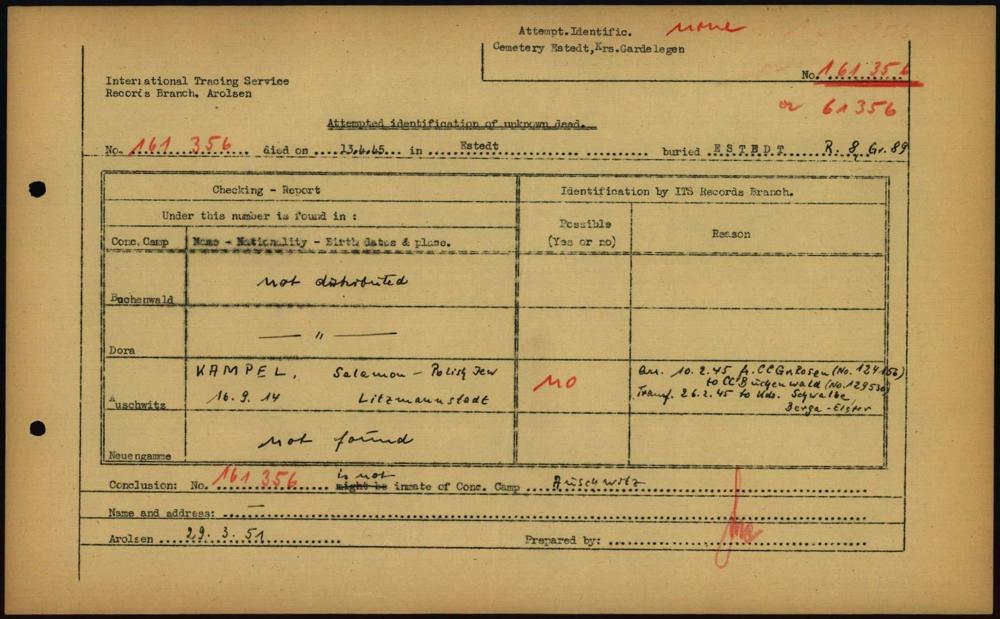 Attempt. Identific. none
Cemetery Estedt, Krs. Gardelegen
International Tracing Service
Records Branch, Arolsen
No. 161 356
or 61356
Attempted identification of unknown dead.
No. 161 356 died on 13.4.45 in Estedt buried ESTEDT R. 8, Gr. 89
Checking - Report
Identification by ITS Records Branch.
Under this number is found in :
Possible
(Yes or no)
Reason
Conc. Camp
Name - Nationality - Birth dates & place.
not distributed
Buchenwald
— " —
Dora
KAMPEL, Salamon - Polish Jew
16.9.14 Litzmannstadt
Auschwitz
no
arr. 10.2.45 fr. CC Gr. Rosen (No. 124156)
to CC Buchenwald (No. 129530)
Transf. 26.2.45 to Kdo. Schwalbe,
Berga-Elster
not found
Neuengamme
Conclusion: No. 161 356 is not might be inmate of Conc. Camp Auschwitz
Name and address: —
Arolsen 29.3.51 Prepared by: